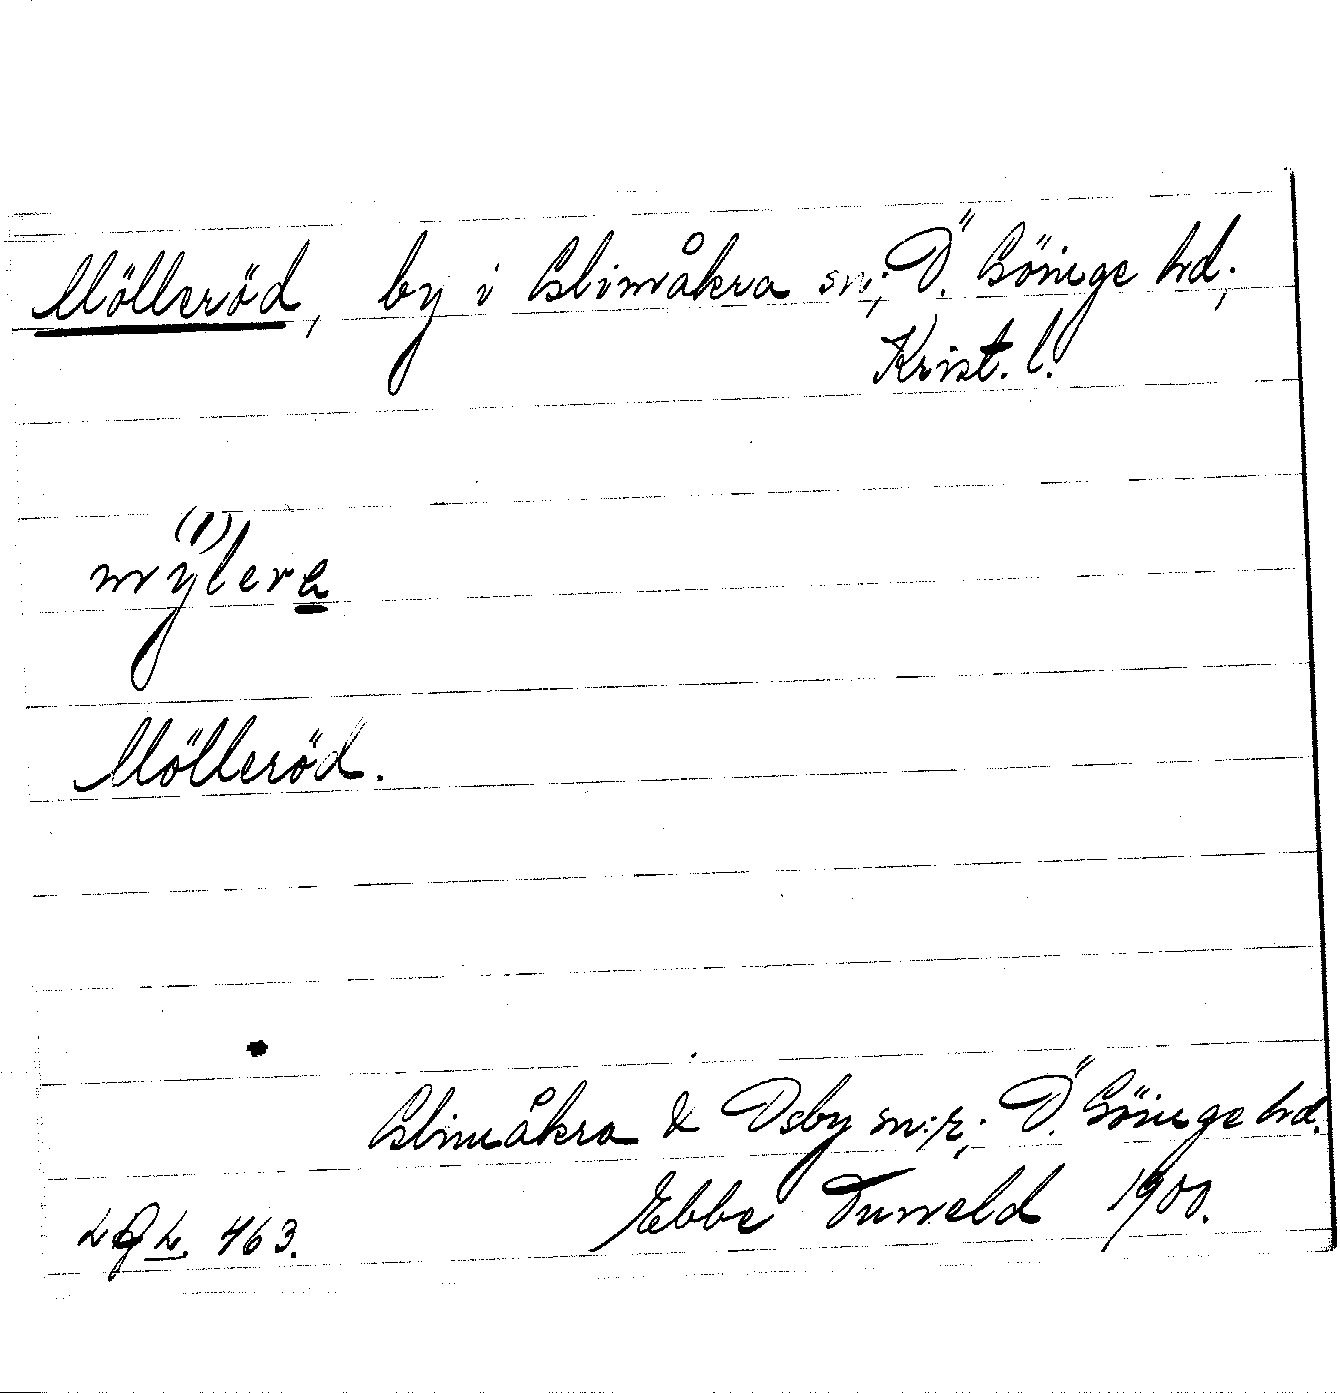 Mölleröd, by i Glimåkra sn; Ö. Göinge hd;
Krist. l.
(1)
mylera
Mölleröd.
Glimåkra & Osby sn:r; Ö. Göinge hd.
Ebbe Tuneld 1900.
463.